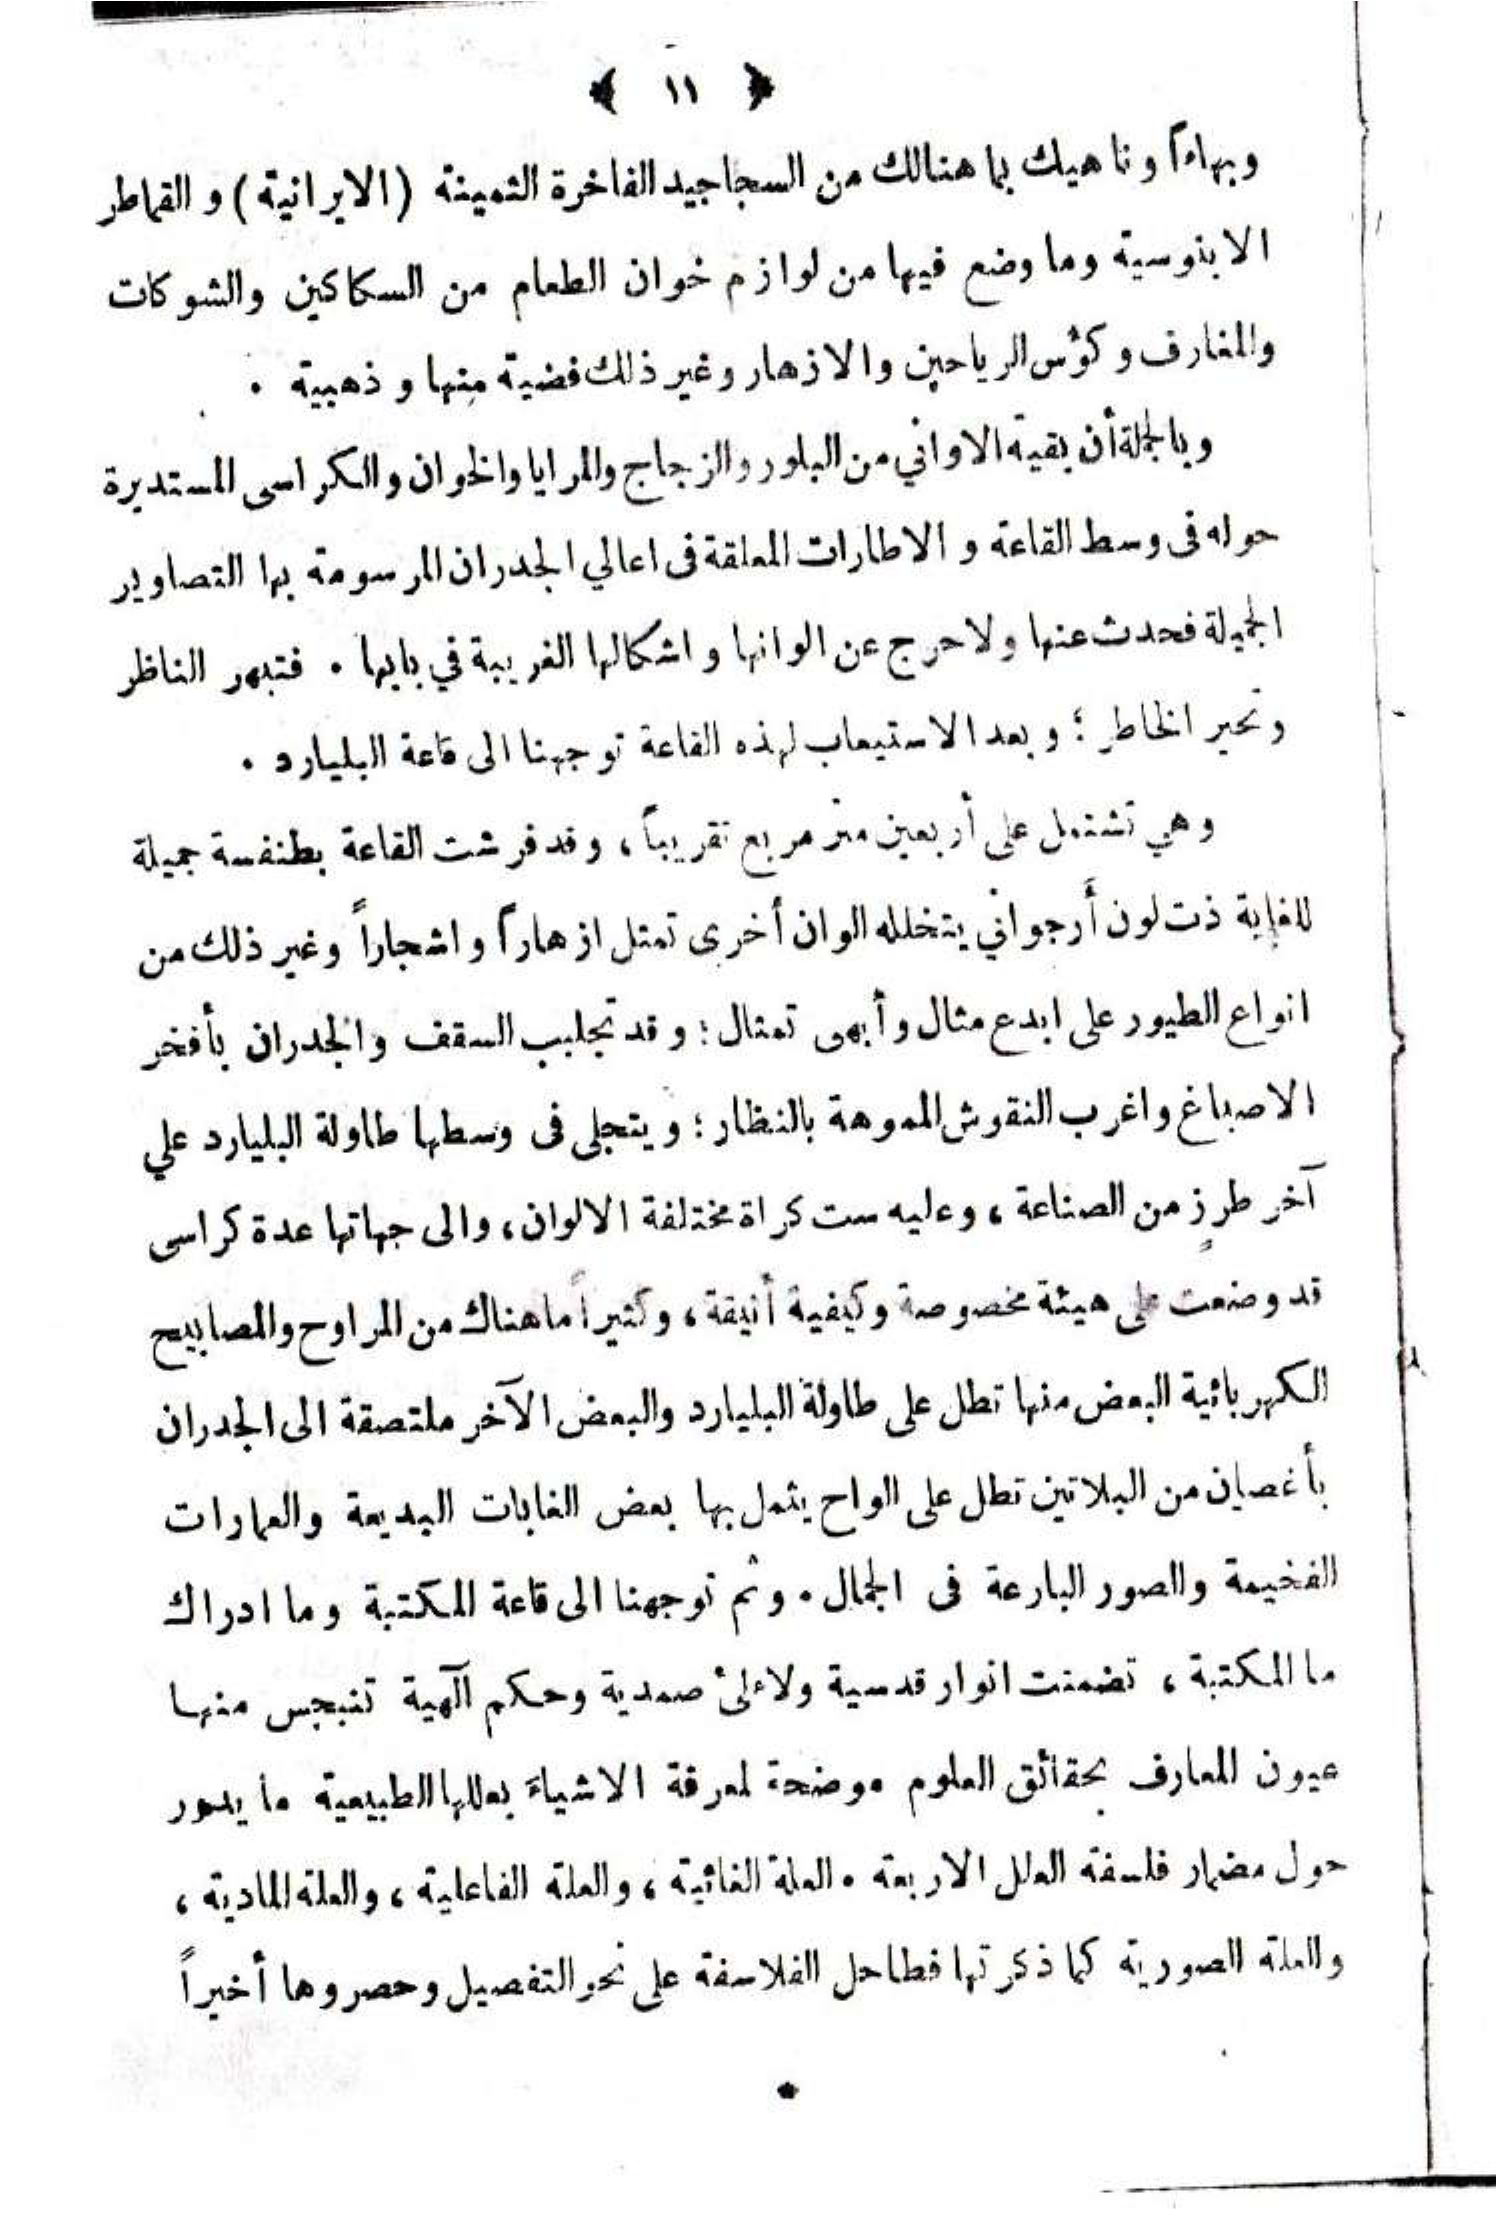 ﴿ ١١ ﴾
وبهاءاً وناهيك بما هنالك من السجاجيد الفاخرة الثمينة (الايرانية) والقماطر
الابنوسية وما وضع فيها من لوازم خوان الطعام من السكاكين والشوكات
والمغارف وكؤس الرياحين والازهار وغير ذلك فضية منها وذهبية .
وبالجملة أن بقية الاواني من البلور والزجاج والمرايا والخوان والكراسى المستديرة
حوله فى وسط القاعة والاطارات المعلقة فى اعالي الجدران المرسومة بها التصاوير
الجميلة فحدث عنها ولا حرج عن الوانها واشكالها الغريبة في بابها . فتبهر الناظر
وتحير الخاطر ؛ وبعد الاستيعاب لهذه القاعة توجهنا الى قاعة البليارد .
وهي تشتمل على أربعين متر مربع تقريباً ، وقد فرشت القاعة بطنفسة جميلة
للغاية ذت لون أرجواني يتخلله الوان أخرى تمثل ازهاراً واشجاراً وغير ذلك من
انواع الطيور على ابدع مثال وأبهى تمثال ؛ وقد تجلبب السقف والجدران بأفخر
الاصباغ واغرب النقوش المموهة بالنظار ؛ ويتجلى فى وسطها طاولة البليارد علي
آخر طرزٍ من الصناعة ، وعليه ست كراة مختلفة الالوان ، والى جهاتها عدة كراسى
قد وضعت على هيئة مخصوصة وكيفية أنيقة ، وكثيراً ما هناك من المراوح والمصابيح
الكهربائية البعض منها تطل على طاولة البليارد والبعض الآخر ملتصقة الى الجدران
بأغصان من البلاتين تطل على الواح يثمل بها بعض الغابات البديعة والعمارات
الفخيمة والصور البارعة فى الجمال . وثم توجهنا الى قاعة المكتبة وما ادراك
ما المكتبة ، تضمنت انوار قدسية ولاءلئ صمدية وحكم آلهية تنبجس منها
عيون المعارف بحقائق العلوم موضحة لمعرفة الاشياء بعللها الطبيعية ما يدور
حول مضمار فلسفة العلل الاربعة . العلة الغائية ، والعلة الفاعلية ، والعلة المادية ،
والعلة الصورية كما ذكرتها فطاحل الفلاسفة على نحو التفصيل وحصروها أخيراً
*